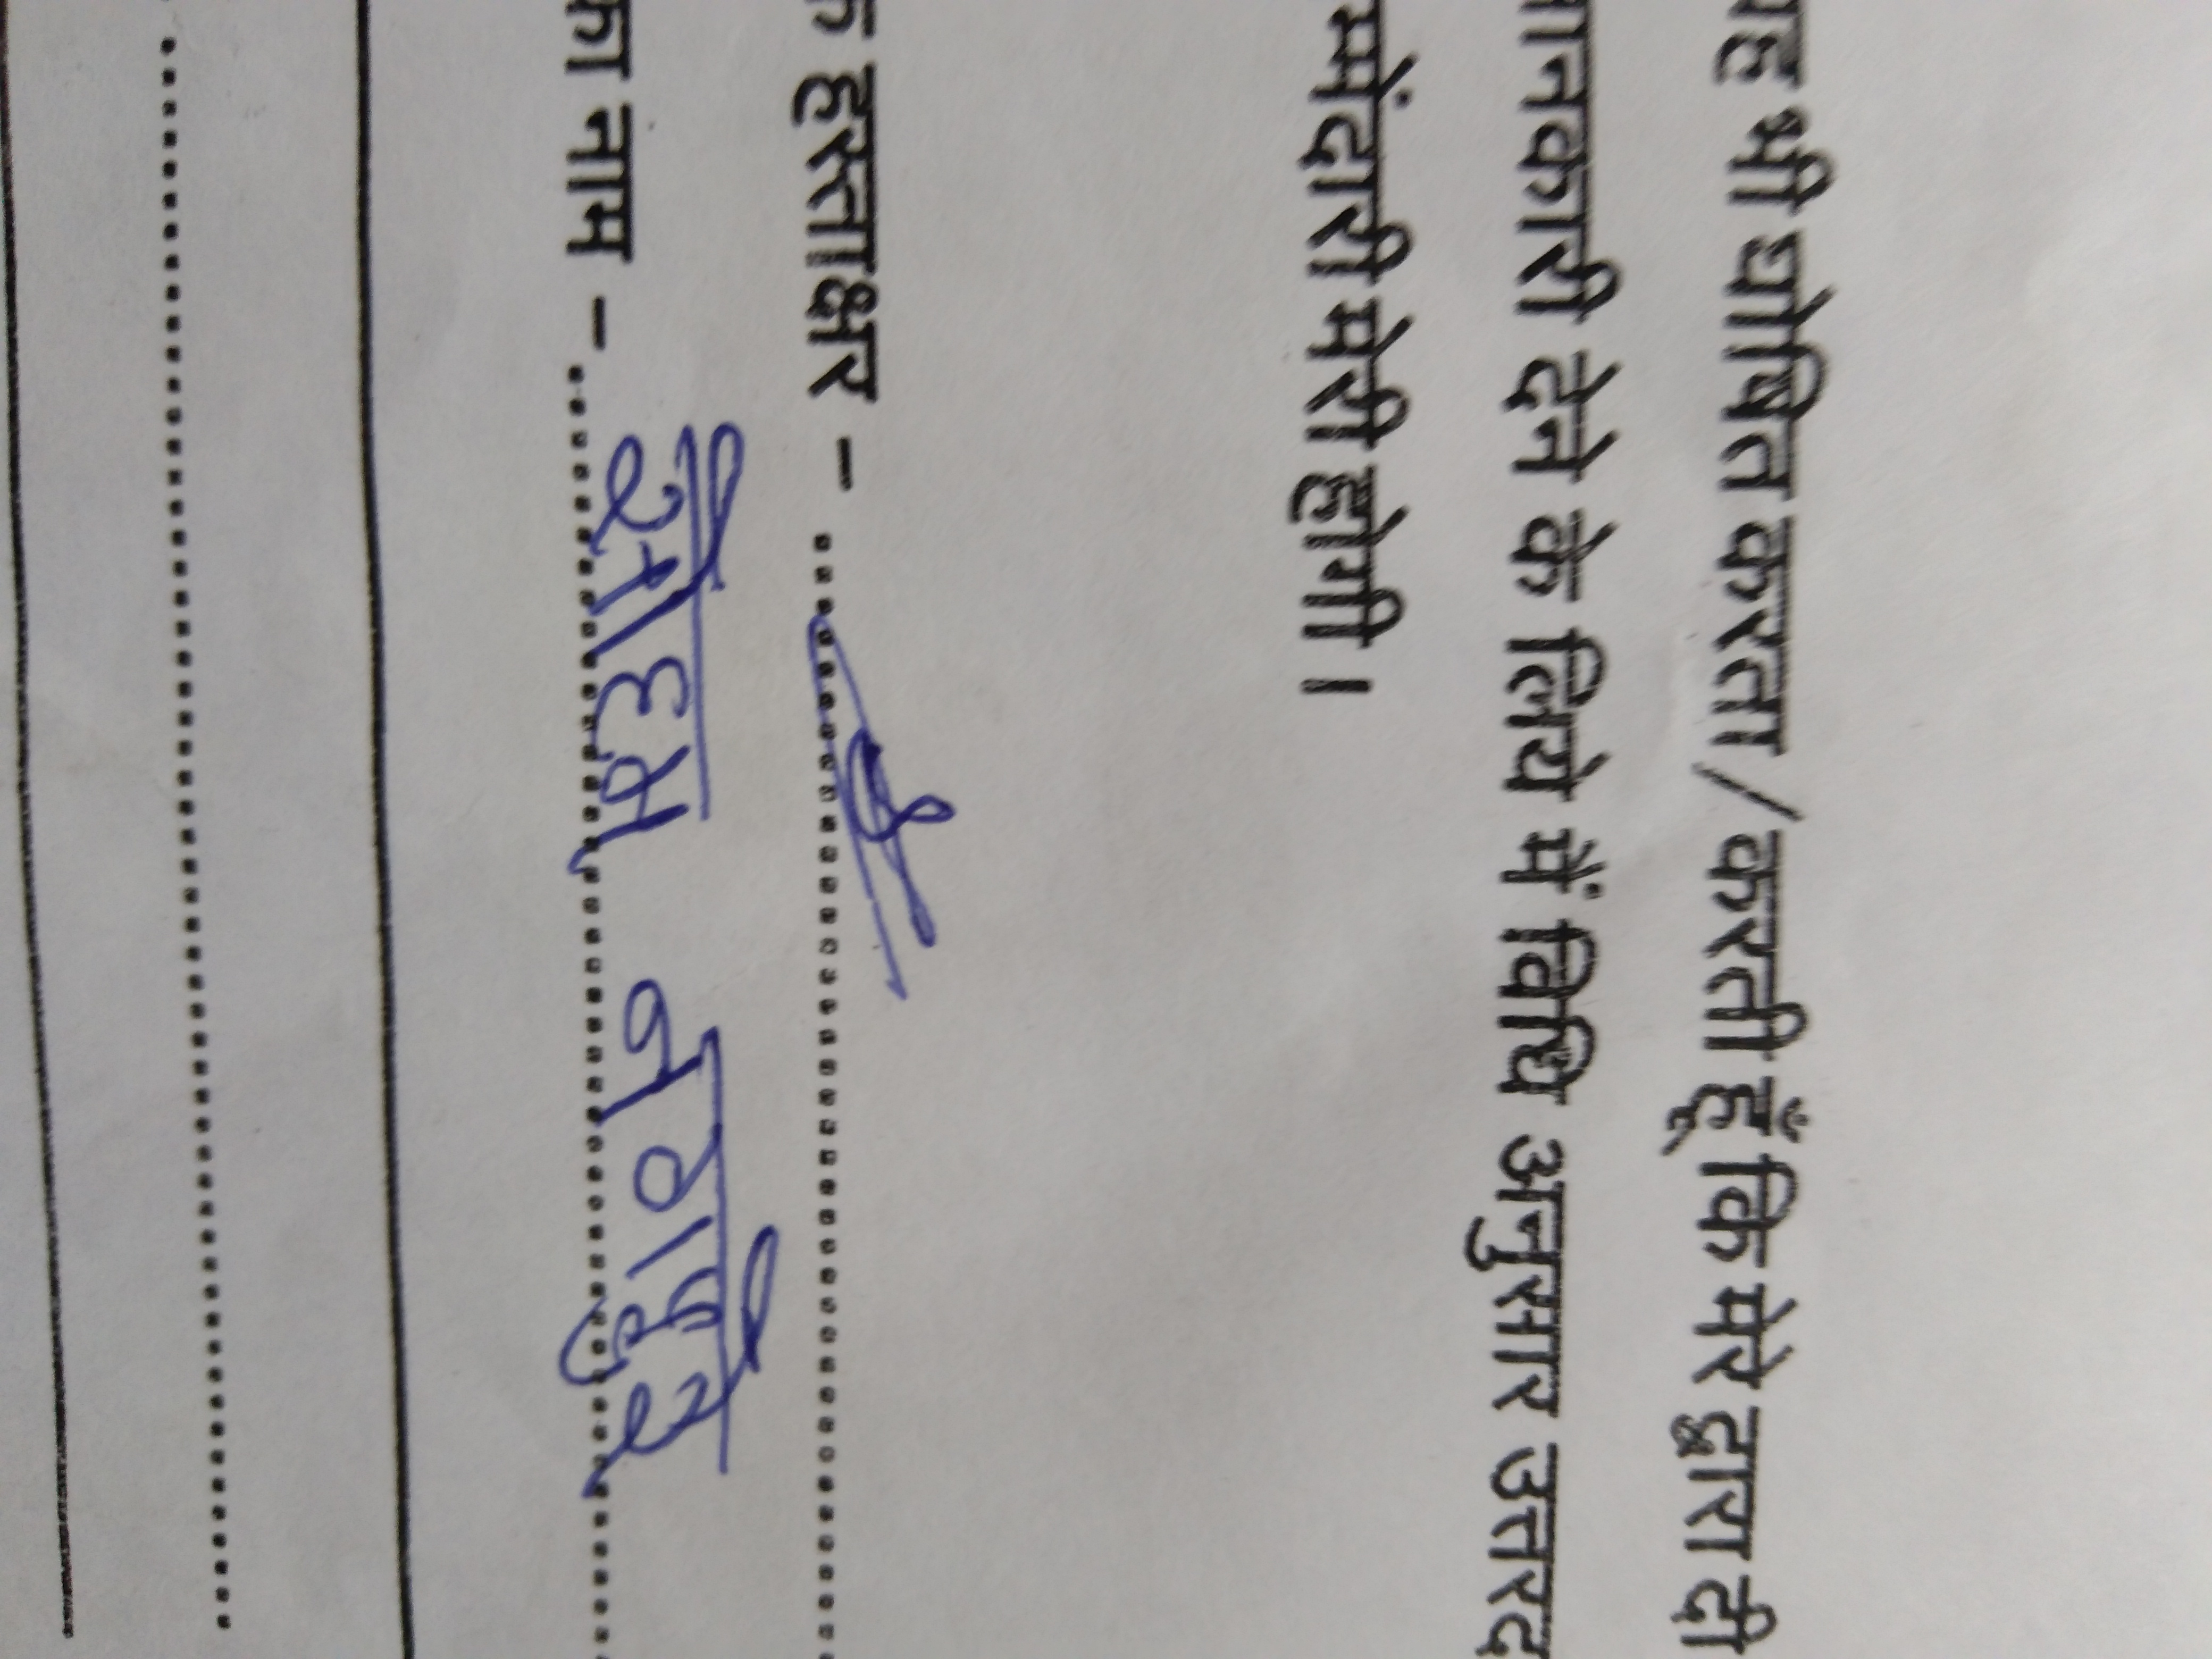 यह भी घोषित करता/करती हूँ कि मेरे द्वारा दी
जानकारी देने के लिये में विधि अनुसार उत्तरद
म्मेंदारी मेरी होगी।
के हस्ताक्षर - ....
का नाम - ....